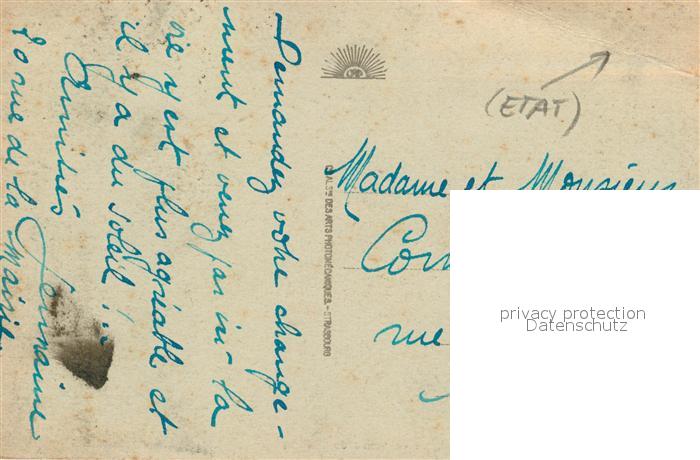 Demandez votre change-
ment et venez par ici la
vie y est plus agréable et
il y a du soleil !
Amitiés
20 rue de la Mairie
CIE ALSNE DES ARTS PHOTOMÉCANIQUES - STRASBOURG
(ETAT)
Madame et Monsieur
rue
privacy protection
Datenschutz